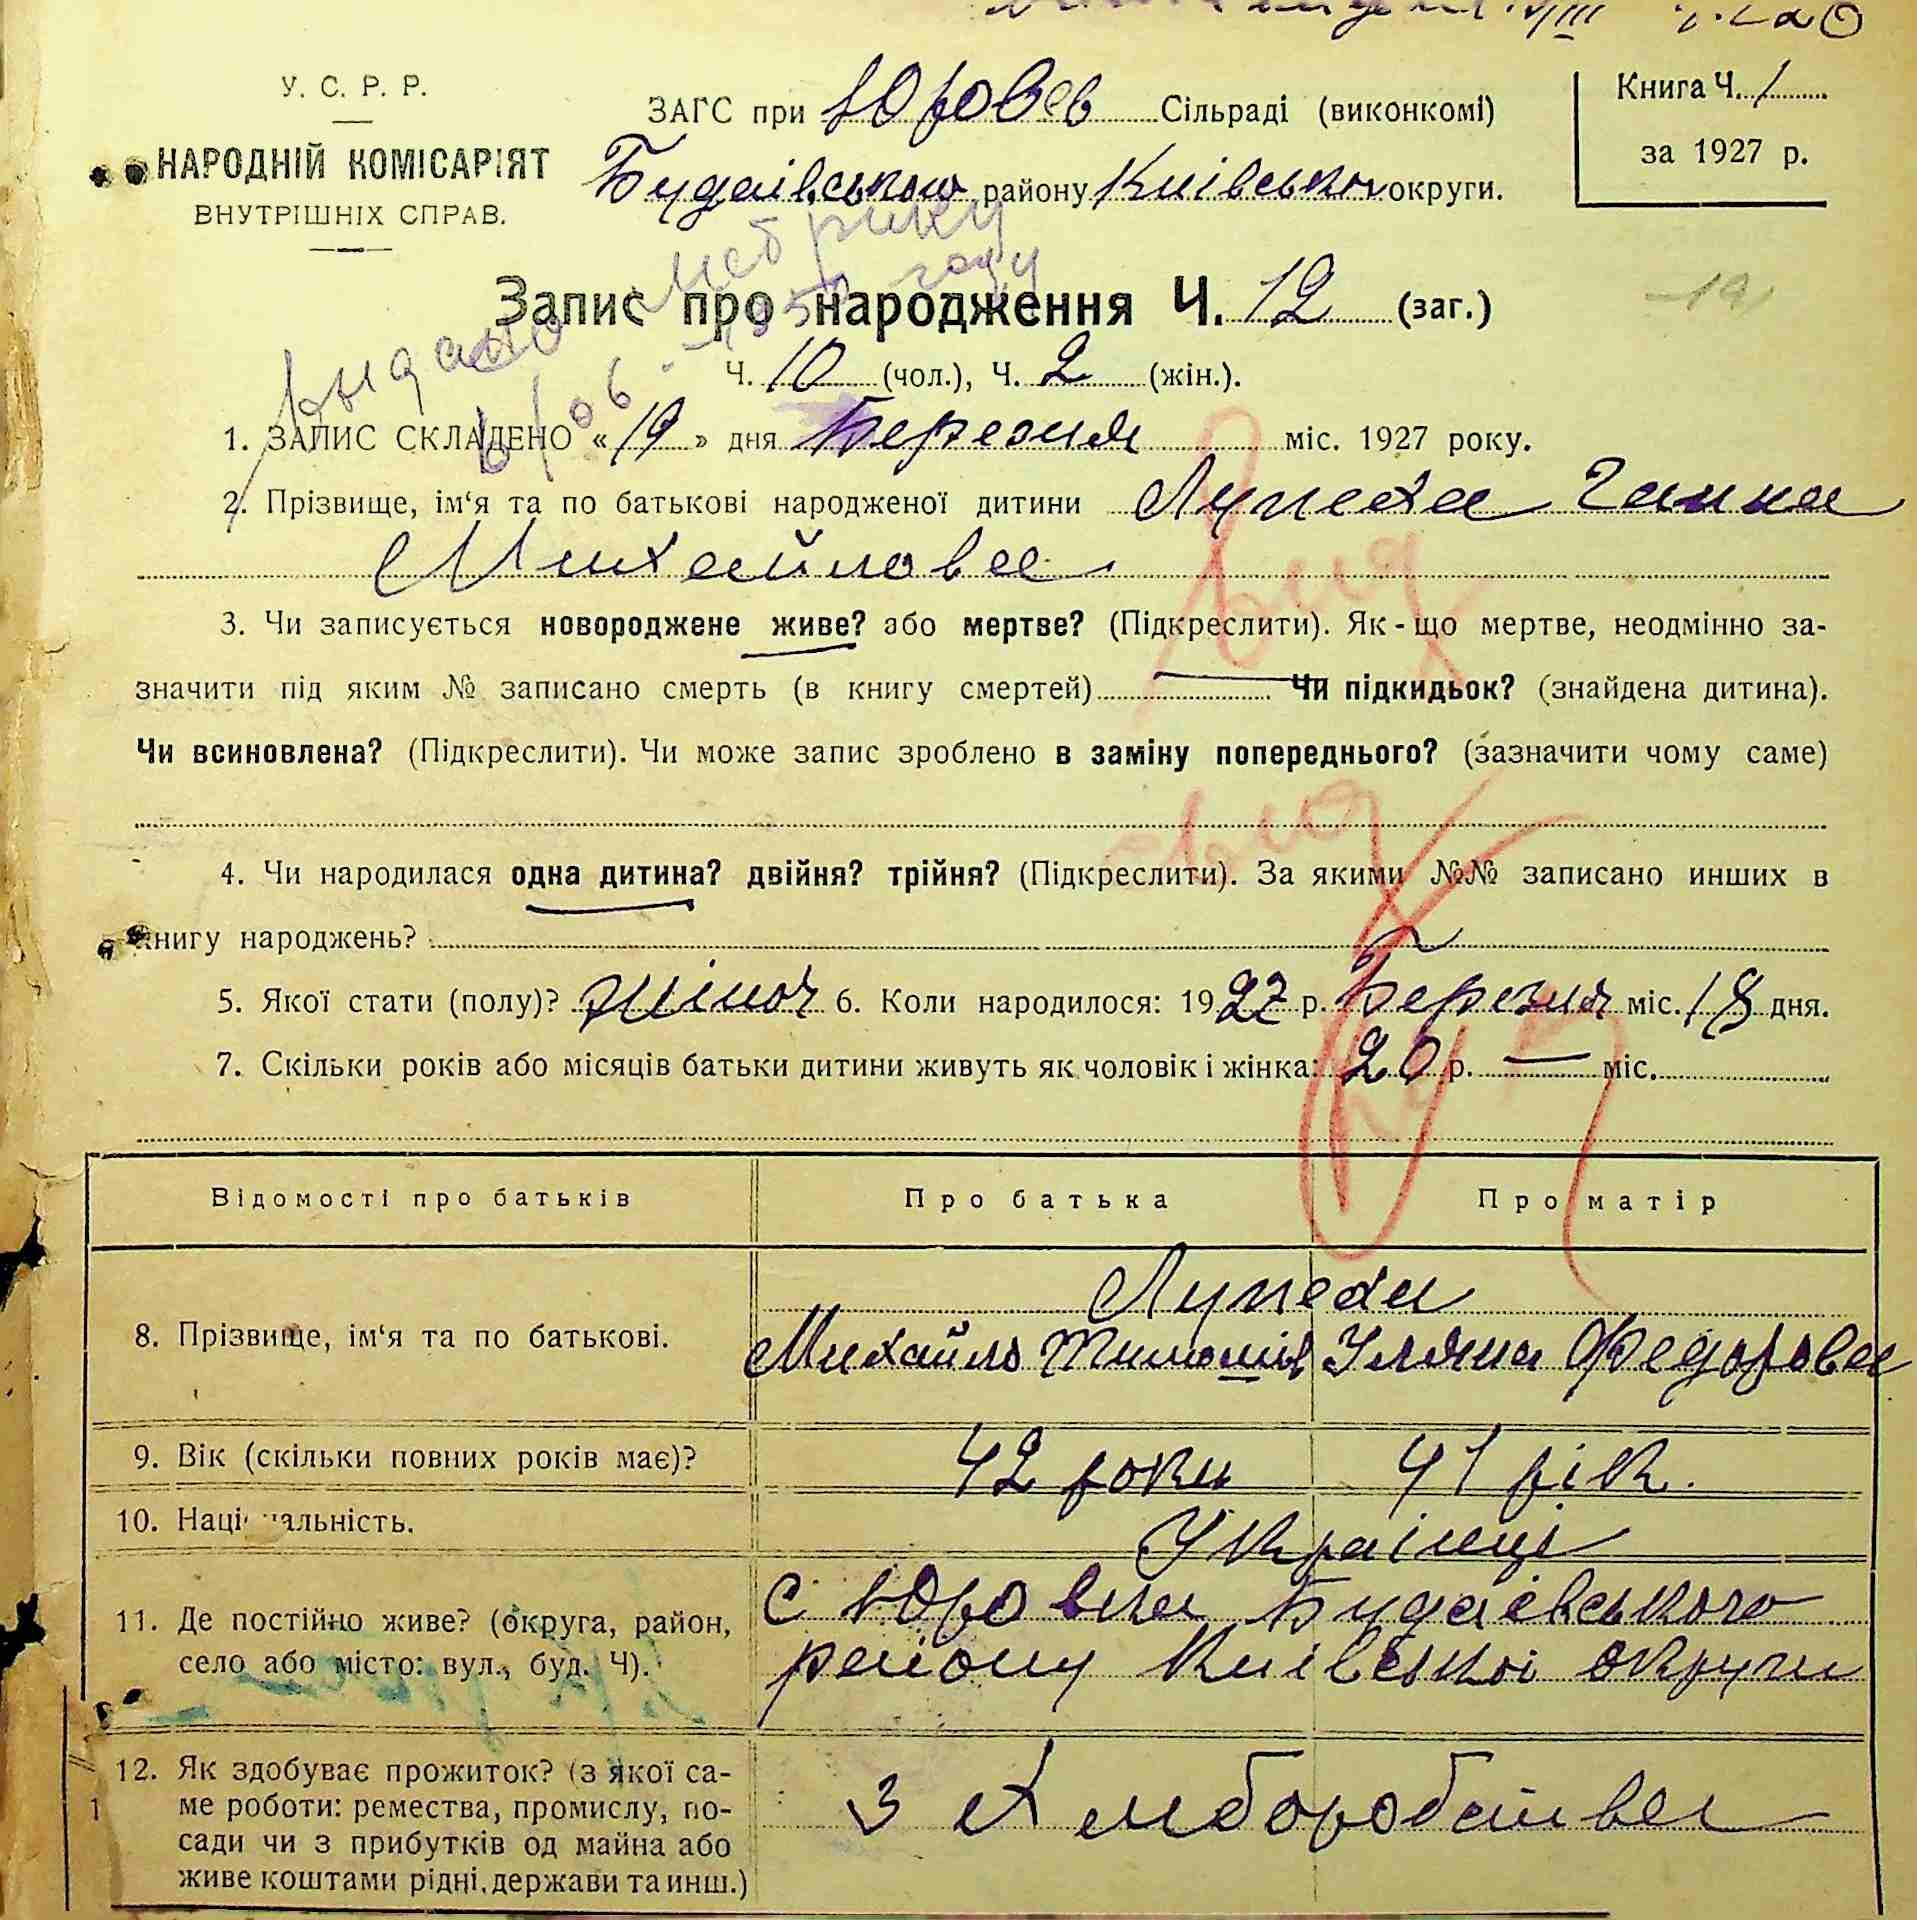 У. С. Р. Р.
НАРОДНІЙ КОМІСАРІЯТ
ВНУТРІШНІХ СПРАВ.
ЗАГС при Юровев Сільраді (виконкомі)
Будаївського району Київської округи.
Книга Ч. 1
за 1927 р.
Запис про народження Ч. 12 (заг.)
Ч. 10 (чол.), Ч. 2 (жін.).
видано метрику
6/06-195 году
1. ЗАПИС СКЛАДЕНО «19» дня Березня міс. 1927 року.
2. Прізвище, ім‘я та по батькові народженої дитини Лупеха Ганна
Михайловна
3. Чи записується новороджене живе? або мертве? (Підкреслити). Як-що мертве, неодмінно за-
значити під яким № записано смерть (в книгу смертей) — Чи підкидьок? (знайдена дитина).
Чи всиновлена? (Підкреслити). Чи може запис зроблено в заміну попереднього? (зазначити чому саме)
4. Чи народилася одна дитина? двійня? трійня? (Підкреслити). За якими №№ записано инших в
книгу народжень?
5. Якої стати (полу)? жіноч 6. Коли народилося: 1927 р. Березня міс. 18 дня.
7. Скільки років або місяців батьки дитини живуть як чоловік і жінка: 20 р. — міс.
Відомості про батьків Про батька Про матір
8. Прізвище, ім‘я та по батькові. Лупехи
Михайло Тимошів Уляна Федорова
9. Вік (скільки повних років має)? 42 роки 41 рік.
10. Національність. Українці
11. Де постійно живе? (округа, район,
село або місто: вул., буд. Ч).
с Юровка Будаївського
району Київської округи
12. Як здобуває прожиток? (з якої са-
ме роботи: ремества, промислу, по-
сади чи з прибутків од майна або
живе коштами рідні, держави та инш.)
З Хлиборобства